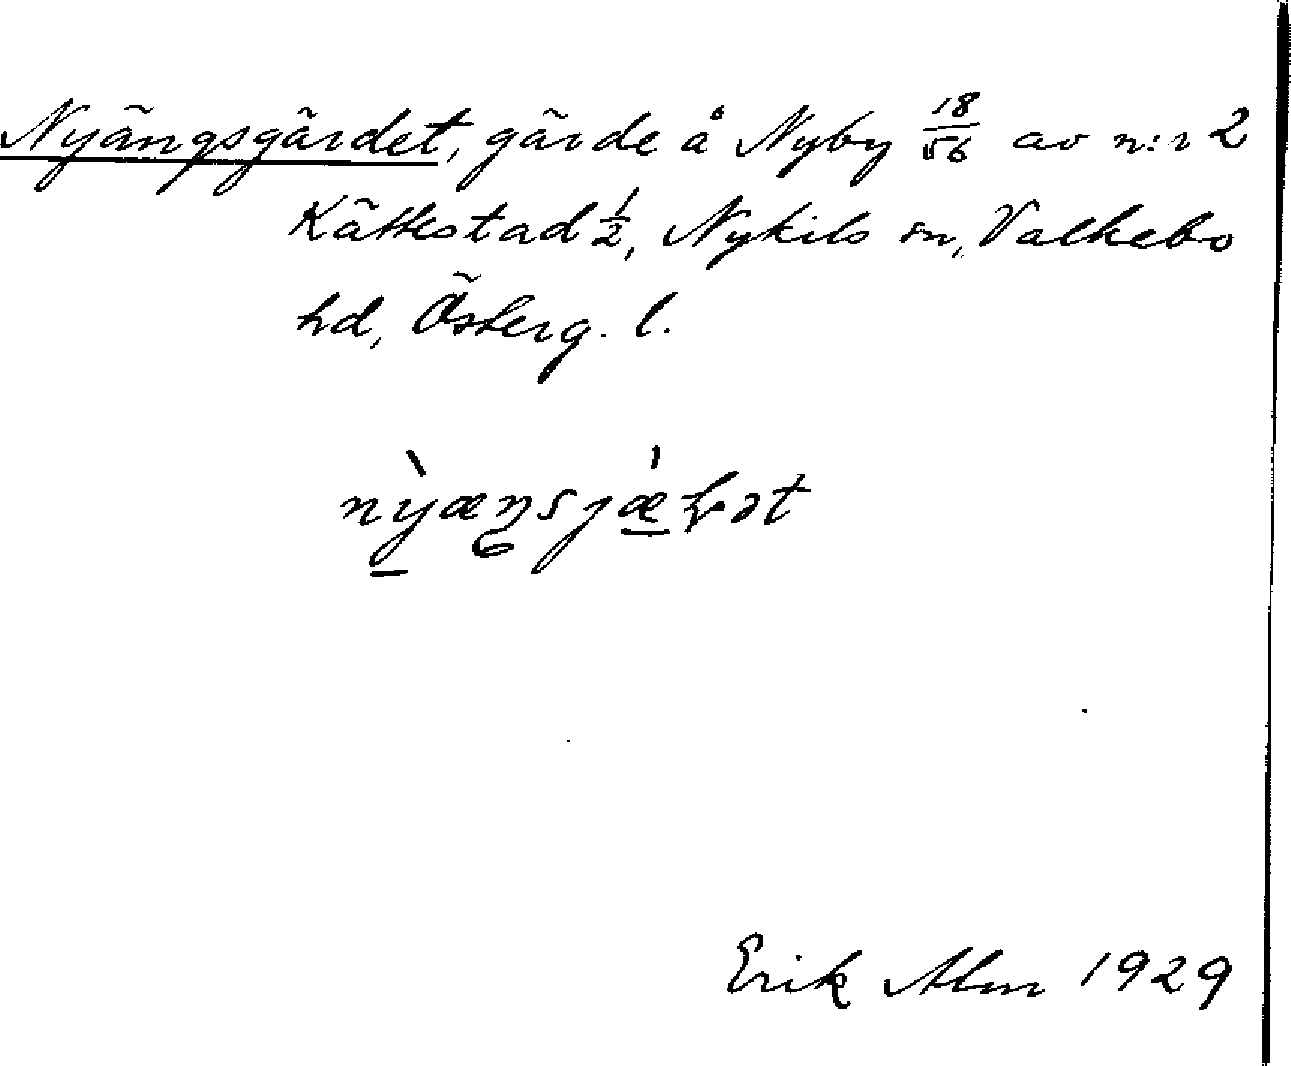 Nyängsgärdet, gärde å Nyby 18/56 av n:r 2
Kättestad 1/2, Nykils sn, Valkebo
hd, Österg. l.
Erik Alm 1929